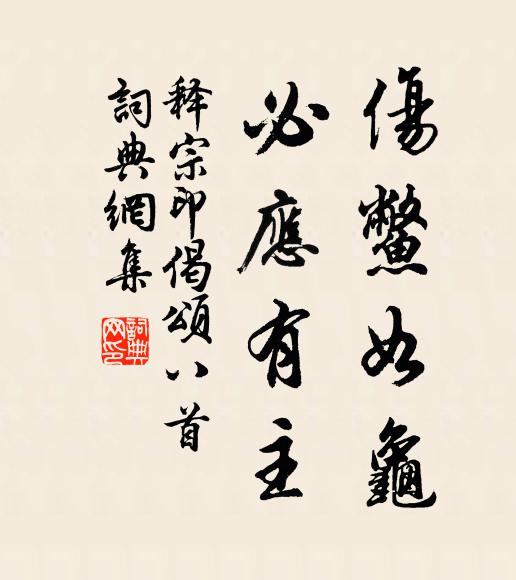 傷鱉如龜
必應有主
释宗印偈頌八首
詞典網集
詞典網印